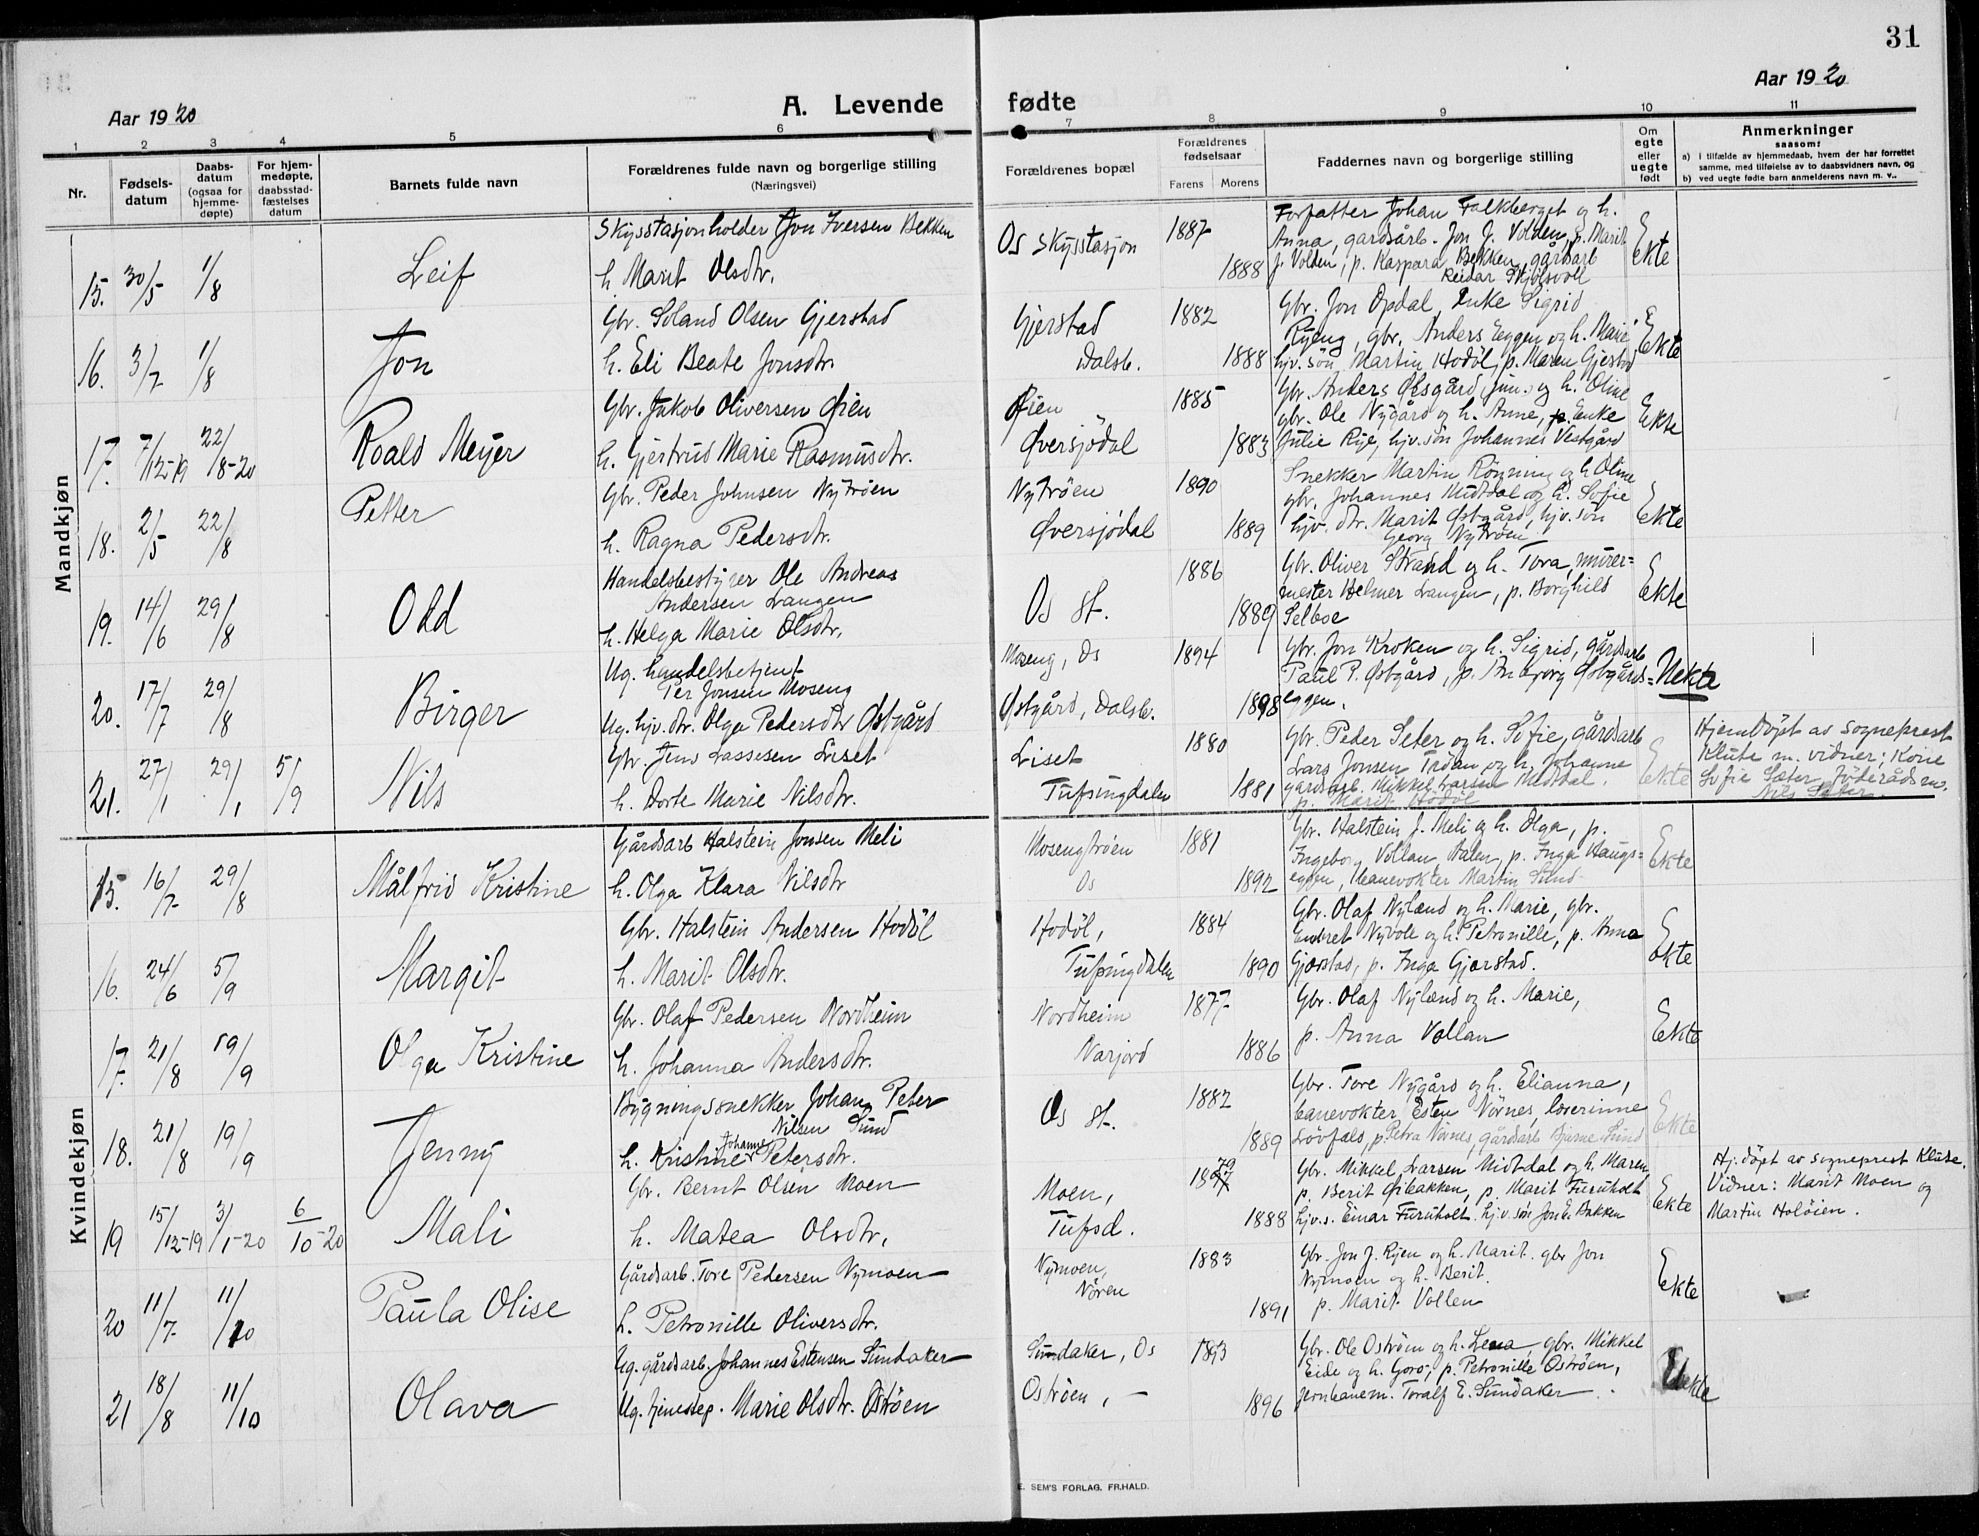 31
Aar 1920
A. Levende fødte
Aar 1920
1 2 3 4 5 6 7 8 9 10 11
Nr.
Fødselsdatum
Daabsdatum (ogsaa for hjemmedøpte)
For hjemmedøpte, daabsstadfæstelses datum
Barnets fulde navn
Forældrenes fulde navn og borgerlige stilling
(Næringsvei)
Forældrenes bopæl
Forældrenes fødselsaar
Farens Morens
Faddernes navn og borgerlige stilling
Om egte eller uegte født
Anmerkninger
saasom:
a) i tilfælde av hjemmedaab, hvem der har forrettet
samme, med tilføielse av to daabsvidners navn, og
b) ved uegte fødte barn anmelderens navn m. v..
Mandkjøn
15. 30/5 1/8 Leif
Skysstasjonholder Jon Iversen Bekken
h. Marit Olsdtr.
Os Skysstasjon
1887 1888
Forfatter Johan Falkberget og h.
Anna, gardsarb. Jon J. Volden, p. Marit
J. Volden, p. Kaspara Bekken, gårdsarb
Reidar Skjølsvoll
Ekte
16. 3/7 1/8 Jon
Gbr. Soland Olsen Gjerstad
h. Eli Beate Jonsdtr.
Gjerstad
Dalsb.
1882 1888
Gbr. Jon Opdal, Enke Sigrid
Ryeng, gbr. Anders Eggen og h. Marie
hjv. søn Martin Hodøl, p. Maren Gjerstad
Ekte
17. 7/12-19 22/8-20 Roald Meyer
Gbr. Jakob Oliversen Øien
h. Gjertrud Marie Rasmusdtr.
Øien
Øversjødal
1885 1883
Gbr. Anders Øisgård, jun. og h. Oline
gbr. Ole Nygård og h. Anne, Enke
Julie Rye, hjv. søn Johannes Vestgård
Ekte
18. 2/5 22/8 Petter
Gbr. Peder Johnsen Nytrøen
h. Ragna Pedersdtr.
Nytrøen
Øversjødal
1890 1889
Snekker Martin Rønning og h. Oline
gbr. Johannes Midtdal og h. Sofie
hjv. dtr. Marit Østgård, hjv. søn
Georg Nytrøen
Ekte
19. 14/6 29/8 Odd
Handelsbestyrer Ole Andreas
Andersen Langen
h. Helga Marie Olsdtr.
Os st.
1886 1889
Gbr. Oliver Strand og h. Tora, murer=
mester Helmer Langen, p. Borghild
Selboe
Ekte
20. 17/7 29/8 Birger
Ug. handelsbetjent
Per Jonsen Moseng
Ug. hjv. dtr. Olga Pedersdtr Østgård
Moseng, Os
Østgård, Dalsb.
1894 1898
Gbr. Jon Kroken og h. Sigrid, gårdsarb
Paul P. Østgård, p. Ambjørg Østgårds=
eggen.
Uekte
21. 27/1 29/1 5/9 Nils
Gbr. Jens Lassesen Liset
h. Dorte Marie Nilsdtr.
Liset
Tufsingdalen
1880 1881
Gbr. Peder Seter og h. Sofie, gårdsarb
Lars Jonsen Trøan og h. Johanne
gårdsarb. Mikkel Larsen Midtdal.
p. Marit Hodøl
Ekte
Hjemdøpt av sogneprest
Klute m. vidner; Kone
Sofie Sæter, Føderådsm.
Nils Sæter
Kvindekjøn
15. 16/7 29/8 Målfrid Kristine
Gårdsarb Halstein Jonsen Meli
h. Olga Klara Nilsdtr
Mosengtrøen
Os
1881 1892
Gbr. Halstein J. Meli og h. Olga, p.
Ingeborg Vollan, Dalen, p. Inga Haugs=
eggen, banevokter Martin Sund
Ekte
16. 24/6 5/9 Margit
Gbr. Halstein Andersen Hodøl
h. Marit Olsdtr.
Hodøl,
Tufsingdalen
1884 1890
Gbr. Olaf Nyland og h. Marie, gbr.
Endret Nyvoll og h. Petronille, p. Anna
Gjerstad, p. Inga Gjerstad.
Ekte
17. 21/8 19/9 Olga Kristine
Gbr. Olaf Pedersen Nordheim
h. Johanna Andersdtr.
Nordheim
Narjord
1877 1886
Gbr. Olaf Nyland og h. Marie,
p. Anna Vollan
Ekte
18. 21/8 19/9 Jenny
Bygningssnekker Johan Peter
Nilsen Sund
h. Kristine Johanne Petersdtr.
Os st.
1882 1889
Gbr. Tore Nygård og h. Elianna,
banevokter Esten Nörnes, lærerinne
Løvfals, p. Petra Nörnes, gårdsarb Bjarne Sund
Ekte
19 15/12-19 3/1-20 6/10-20 Mali
Gbr. Bernt Olsen Moen
h. Matea Olsdtr.
Moen,
Tufsd.
1879 1888
Gbr. Mikkel Larsen Midtdal og h. Maren
p. Berit Øibakken, p. Marit Furuholt
hjv.s. Einar Furuholt. hjv. søn Jon E. Bakken
Ekte
Hj.døpt av sogneprest Klute.
Vidner: Marit Moen og
Martin Holøien.
20 11/7 11/10 Paula Olise
Gårdsarb. Tore Pedersen Nymoen
h. Petronille Oliversdtr.
Nymoen,
Nören
1883 1891
Gbr. Jon J. Ryen og h. Marit. gbr Jon
Nymoen og h. Berit.
p. Marit Vollen
Ekte
21 18/8 11/10 Olava
Ug. gårdsarb. Johannes Estensen Sundaker
Ug. tjenestep. Marie Olsdtr. Ostrøen
Sundaker, Os
Ostrøen, —
1893 1896
Gbr. Ole Ostrøen og h. Lena, gbr. Mikkel
Eide og h. Goro, p. Petronille Ostrøen,
jernbanem. Toralf E. Sundaker
Uekte
E. SEM'S FORLAG, FR.HALD.